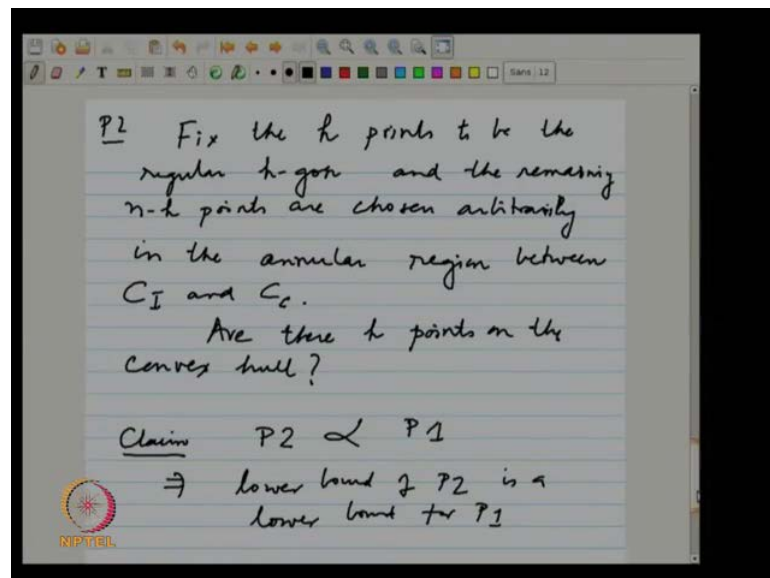 Sans 12
P2 Fix the h points to be the
regular h-gon and the remaining
n-h points are chosen arbitrarily
in the annular region between
C_I and C_c.
Are there h points on the
convex hull?
Claim P2 ∝ P1
⇒ lower bound of P2 is a
lower bound for P1
NPTEL